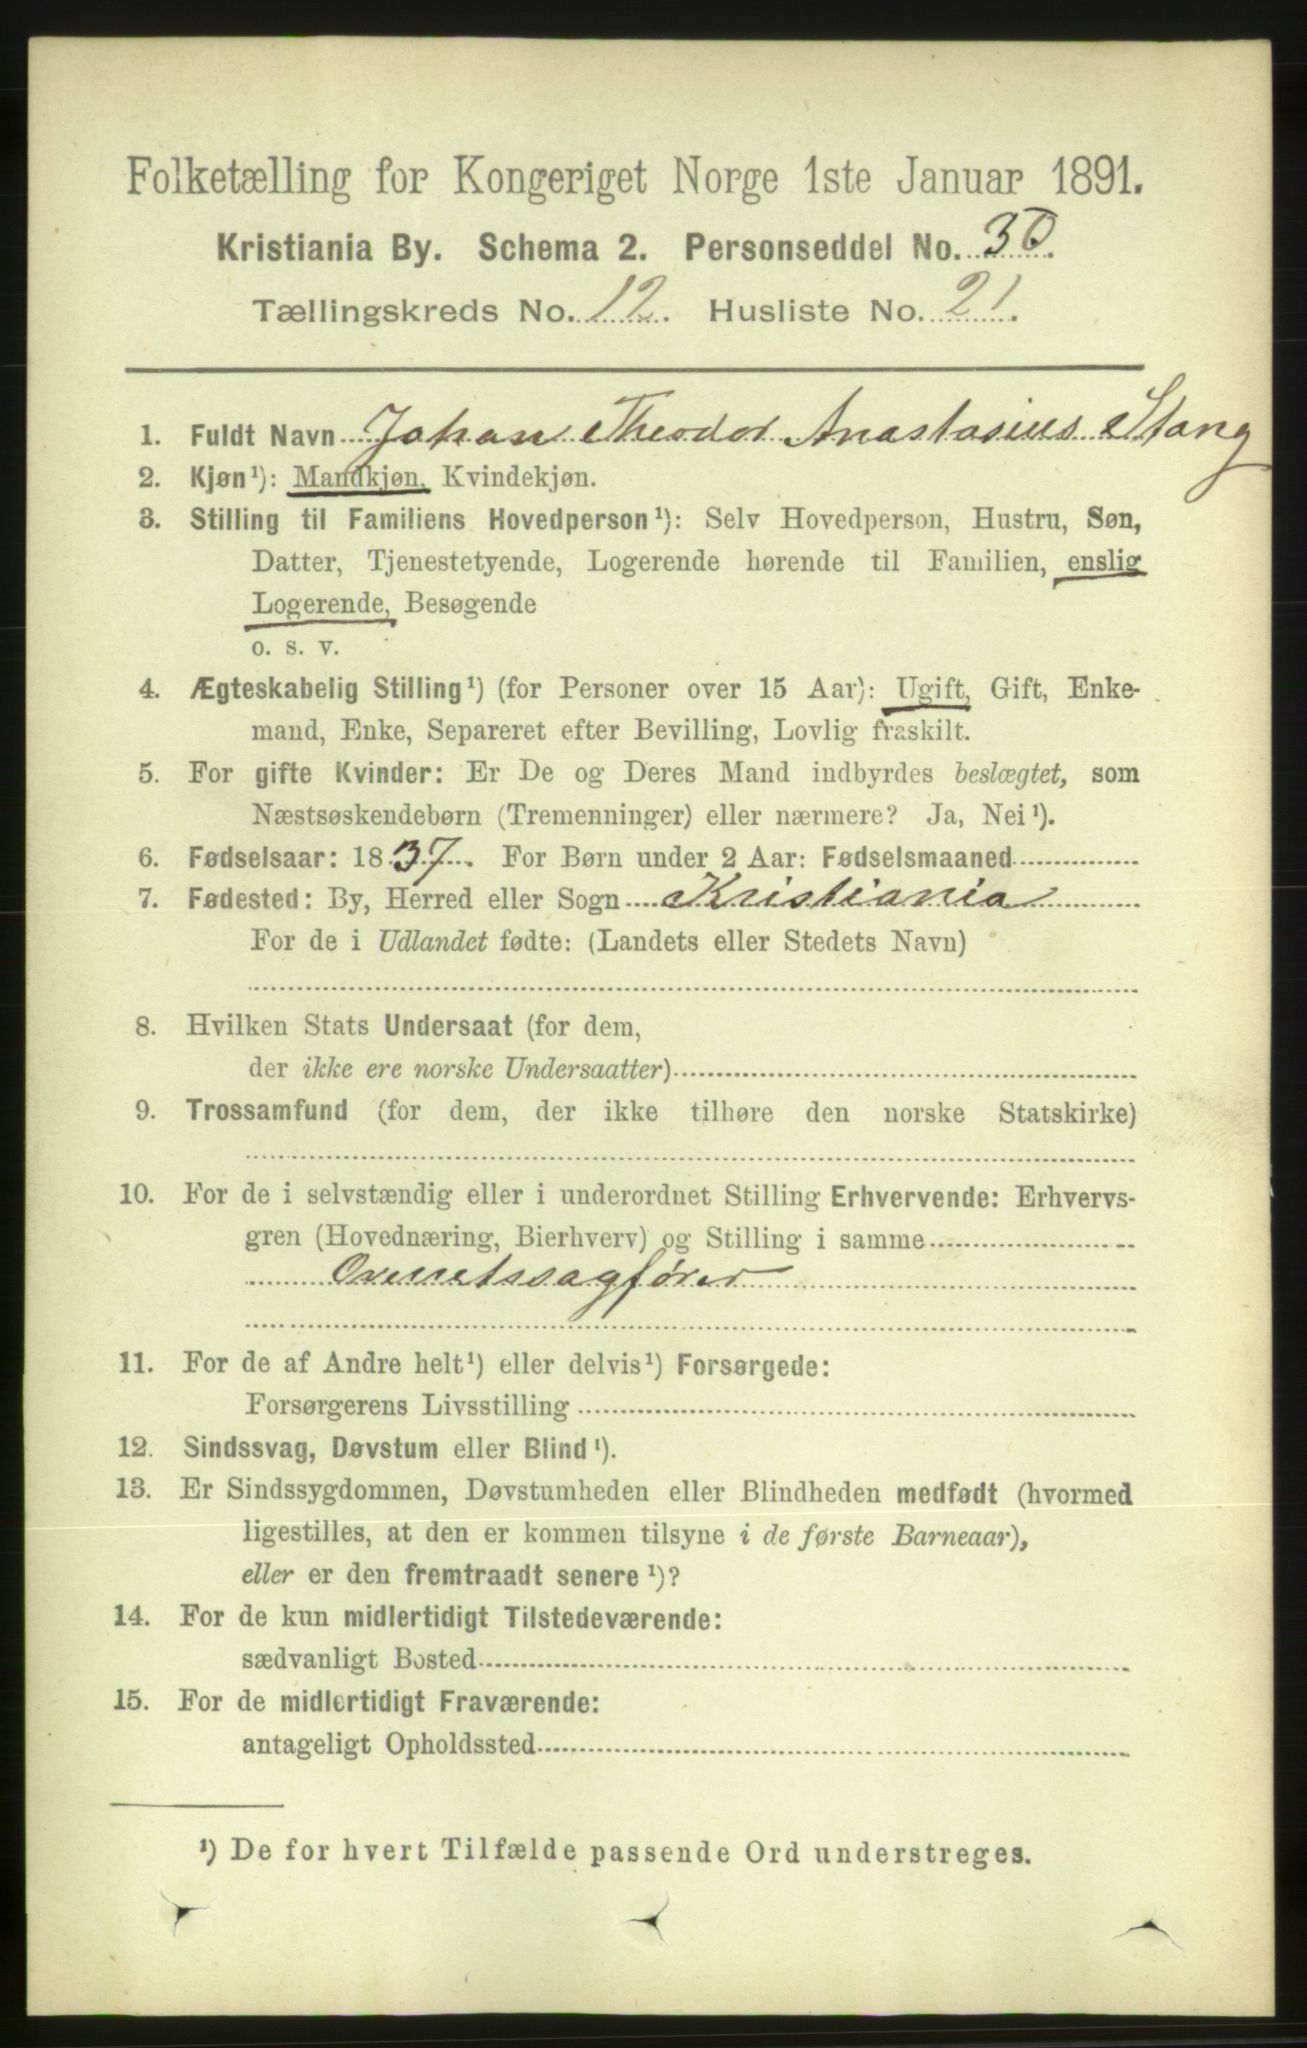 Folketælling for Kongeriget Norge 1ste Januar 1891.
Kristiania By. Schema 2. Personseddel No. 30.
Tællingskreds No. 12. Husliste No. 21.
1. Fuldt Navn Johan Theodor Anastasius Stang
2. Kjøn¹): Mandkjøn, Kvindekjøn.
3. Stilling til Familiens Hovedperson¹): Selv Hovedperson, Hustru, Søn,
Datter, Tjenestetyende, Logerende hørende til Familien, enslig
Logerende, Besøgende
o. s. v.
4. Ægteskabelig Stilling¹) (for Personer over 15 Aar): Ugift, Gift, Enke-
mand, Enke, Separeret efter Bevilling, Lovlig fraskilt.
5. For gifte Kvinder: Er De og Deres Mand indbyrdes beslægtet, som
Næstsøskendebørn (Tremenninger) eller nærmere? Ja, Nei¹).
6. Fødselsaar: 1837. For Børn under 2 Aar: Fødselsmaaned
7. Fødested: By, Herred eller Sogn Kristiania
For de i Udlandet fødte: (Landets eller Stedets Navn)
8. Hvilken Stats Undersaat (for dem,
der ikke ere norske Undersaatter)
9. Trossamfund (for dem, der ikke tilhøre den norske Statskirke)
10. For de i selvstændig eller i underordnet Stilling Erhvervende: Erhvervs-
gren (Hovednæring, Bierhverv) og Stilling i samme
Overretssagfører
11. For de af Andre helt¹) eller delvis¹) Forsørgede:
Forsørgerens Livsstilling
12. Sindssvag, Døvstum eller Blind¹).
13. Er Sindssygdommen, Døvstumheden eller Blindheden medfødt (hvormed
ligestilles, at den er kommen tilsyne i de første Barneaar),
eller er den fremtraadt senere¹)?
14. For de kun midlertidigt Tilstedeværende:
sædvanligt Bosted
15. For de midlertidigt Fraværende:
antageligt Opholdssted
¹) De for hvert Tilfælde passende Ord understreges.